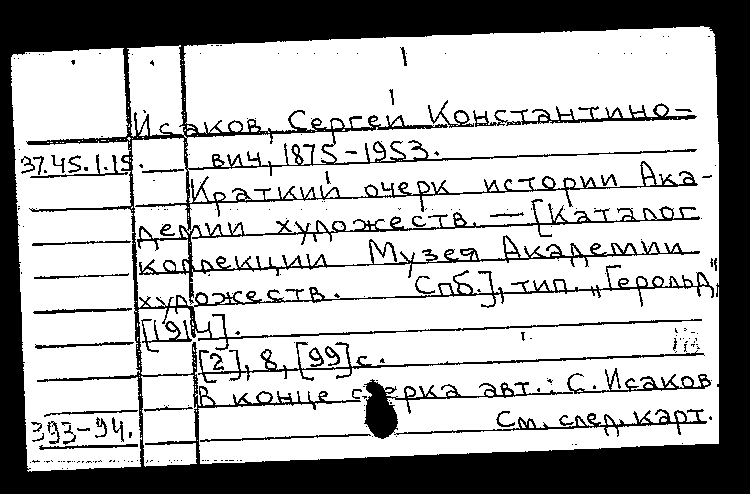 Исаков, Сергей Константино-
37.45.1.15. вич, 1875-1953.
Краткий очерк истории Ака-
демии художеств. — [Каталог
коллекции Музея Академии
художеств. Спб.], тип. „Герольд",
[1914].
[2], 8, [99] с.
В конце очерка авт.: С. Исаков.
393-94. См. след. карт.